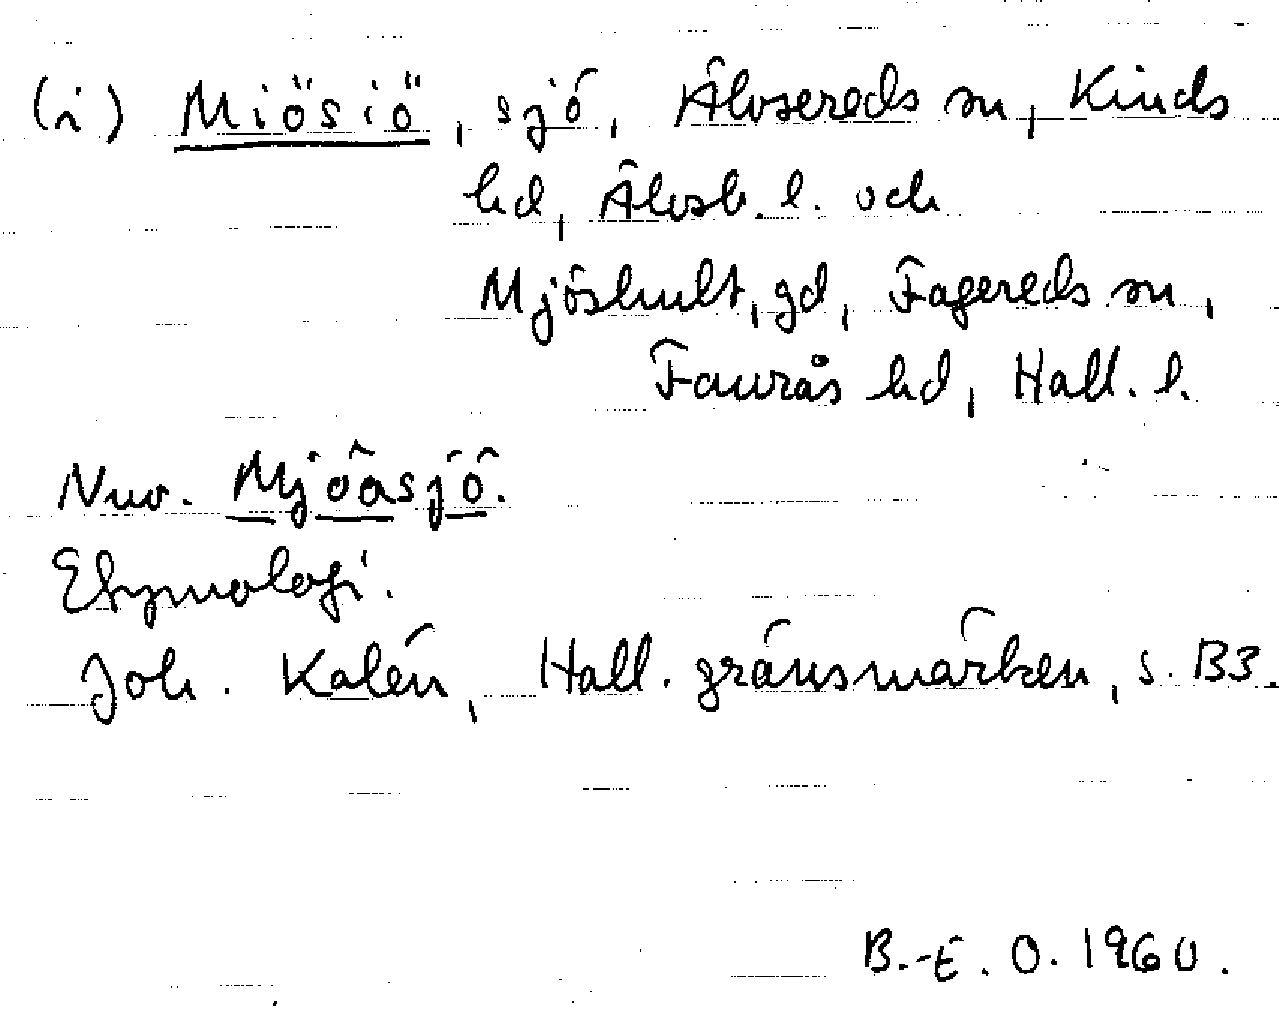 (i) Miösiö, sjö, Älvsereds sn, Kinds
hd, Älvsb. l. och
Mjöshult, gd, Fagereds sn,
Faurås hd, Hall. l.
Nuv. Mjöasjö.
Etymologi.
Joh. Kalén, Hall. gränsmärken, s. B3.
B.-E. O. 1960.